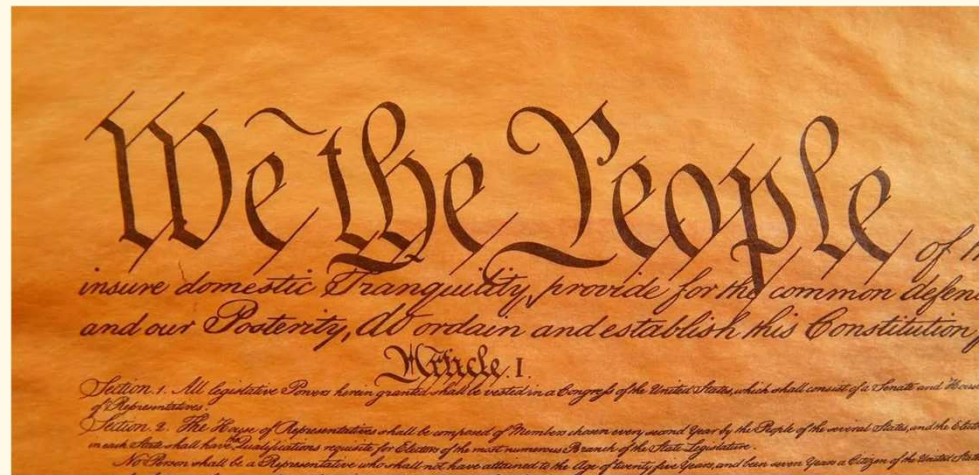 We the People of
insure domestic Tranquility, provide for the common defen
and our Posterity, do ordain and establish this Constitution
Article. I.
Section. 1. All legislative Powers herein granted shall be vested in a Congress of the United States, which shall consist of a Senate and House
of Representatives.
Section. 2. The House of Representatives shall be composed of Members chosen every second Year by the People of the several States, and the Elect
in each State shall have the Qualifications requisite for Electors of the most numerous Branch of the State Legislature.
No Person shall be a Representative who shall not have attained to the Age of twenty five Years, and been seven Years a Citizen of the United